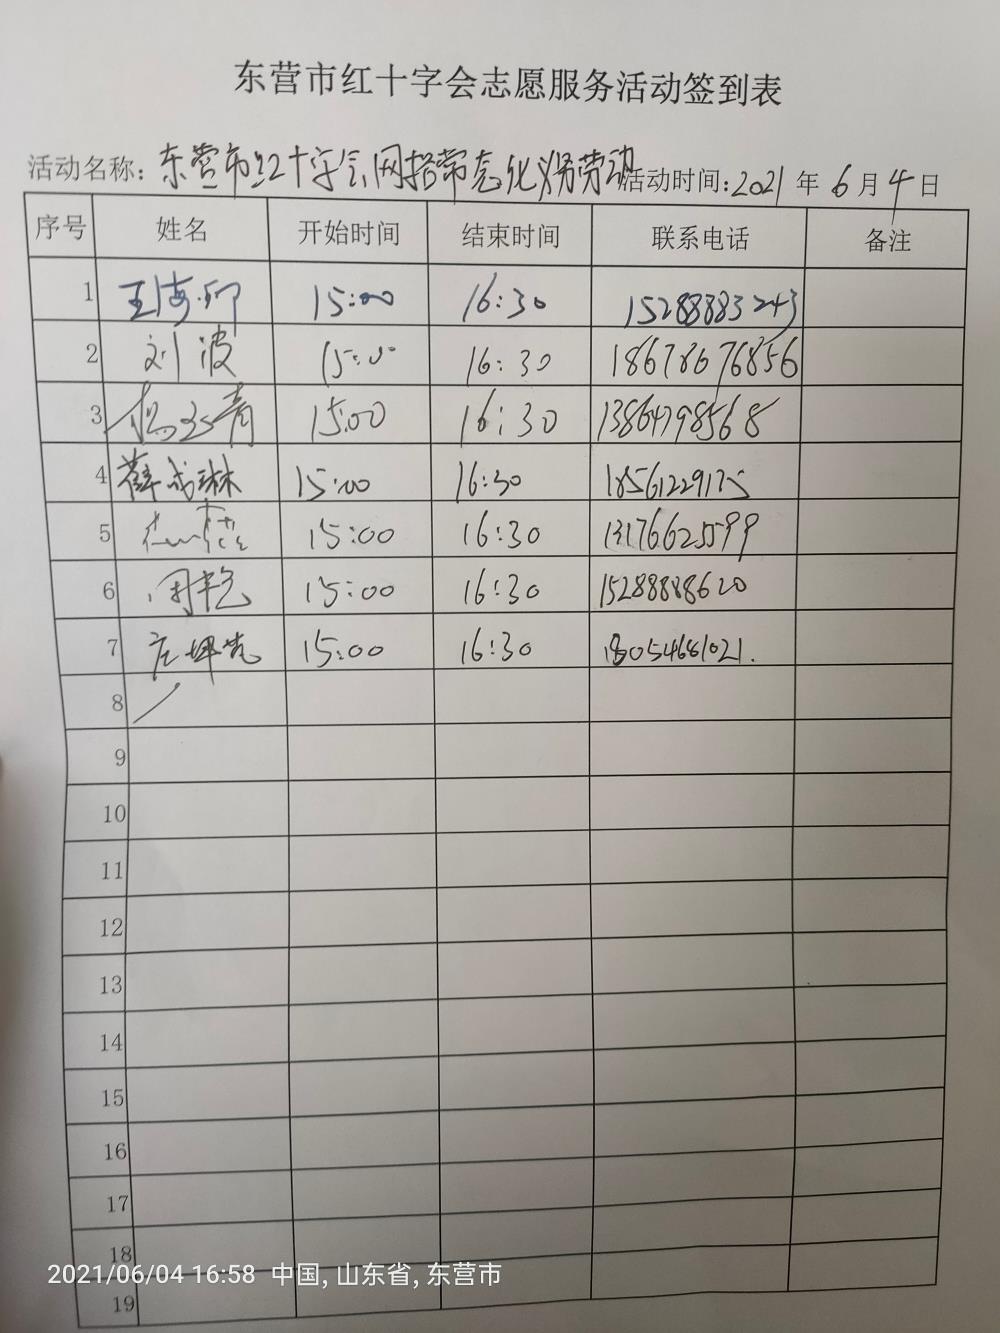 东营市红十字会志愿服务活动签到表
活动名称：东营市红十字会网格常态化义务劳动 活动时间：2021年6月4日
序号 姓名 开始时间 结束时间 联系电话 备注
1 王海 15:00 16:30 15288883243
2 刘波 15:00 16:30 18678676856
3 杨 青 15:00 16:30 13864798568
4 薛成琳 15:00 16:30 18561229175
5 15:00 16:30 13176625599
6 周艳 15:00 16:30 15288888620
7 庄坤 15:00 16:30 18054681021.
8
9
10
11
12
13
14
15
16
17
18
2021/06/04 16:58 中国, 山东省, 东营市
19